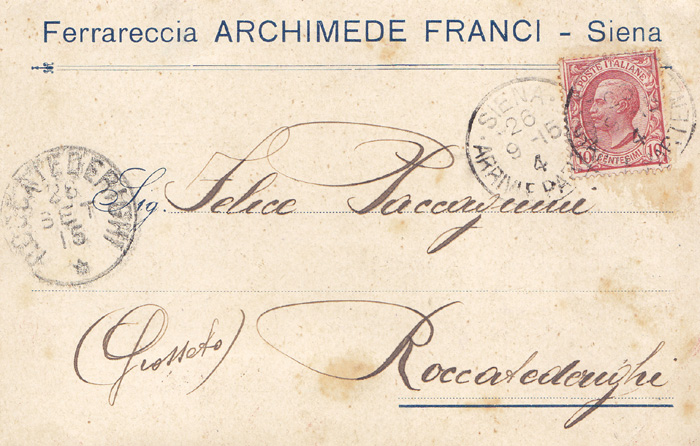 Ferrareccia ARCHIMEDE FRANCI - Siena
POSTE ITALIANE
10 CENTESIMI 10
SIENA
26
9 15
4
ARRIVI E PAR
ROCCATEDERIGHI
15
Sig. Felice Paccagnini
(Grosseto)
Roccatederighi